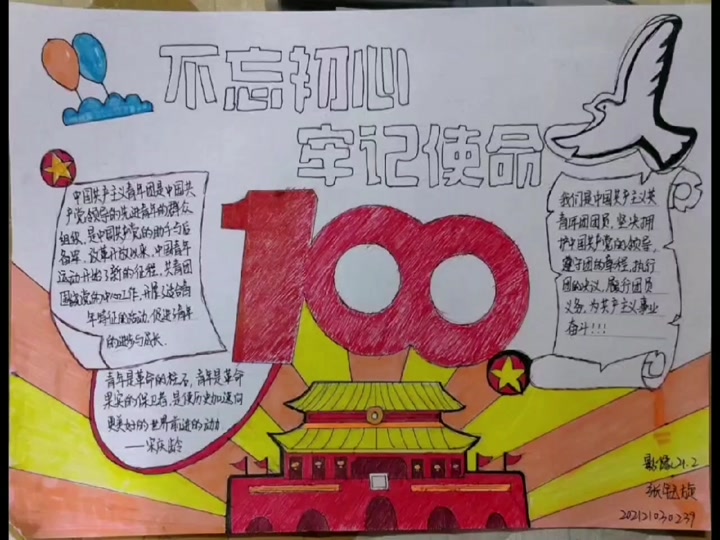 不忘初心
牢记使命
100
中国共产主义青年团是中国共
产党领导的先进青年的群众
组织,是中国共产党的助手与后
备军。改革开放以来,中国青年
运动开始了新的征程,共青团
围绕党的中心工作,开展了适合青
年特征的活动,促进了青年
的进步与成长。
青年是革命的柱石,青年是革命
果实的保卫者,是使历史加速向
更美好的世界前进的动力
——宋庆龄
我们是中国共产主义共
青年团团员,坚决拥
护中国共产党的领导,
遵守团的章程,执行
团的决议,履行团员
义务,为共产主义事业
奋斗!!!
21.2
张
202121030239